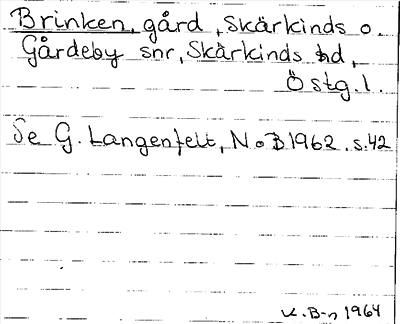 Brinken, gård, Skärkinds o.
Gårdeby snr, Skärkinds hd,
Östg.l.
Se G. Langenfelt, NoB 1962. s.42
K.B-n 1964